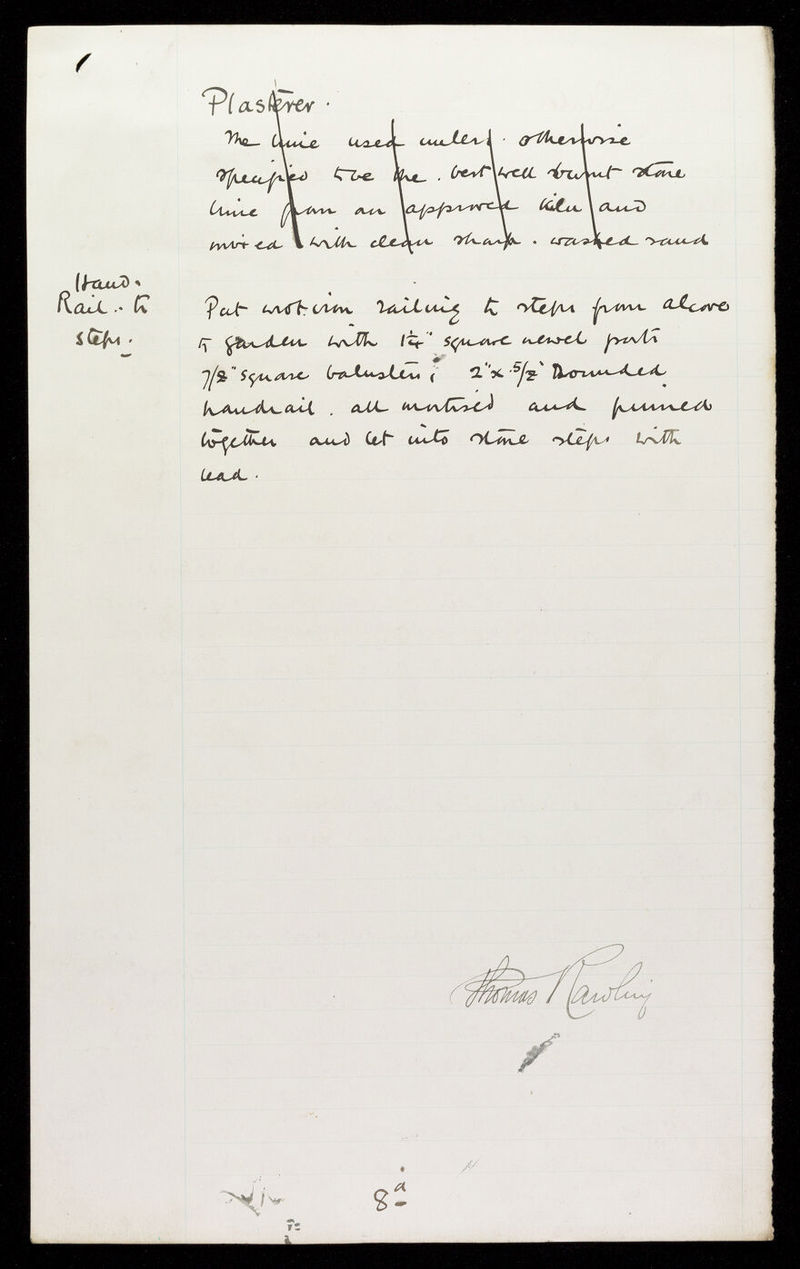 Plasterer.
The lime used unless otherwise
specified to be the best well burnt stone
lime from an approved kiln and
mixed with clean sharp washed sand
Hand.
Rail. to
steps.
Put wrot iron railing to steps from alcove
to garden with 1¼" square newel posts
7/8" square balusters; 2" x 5/8" rounded
handrail. all mortised and pinned
together and let into stone steps with
lead.
Thomas Rawling
8a